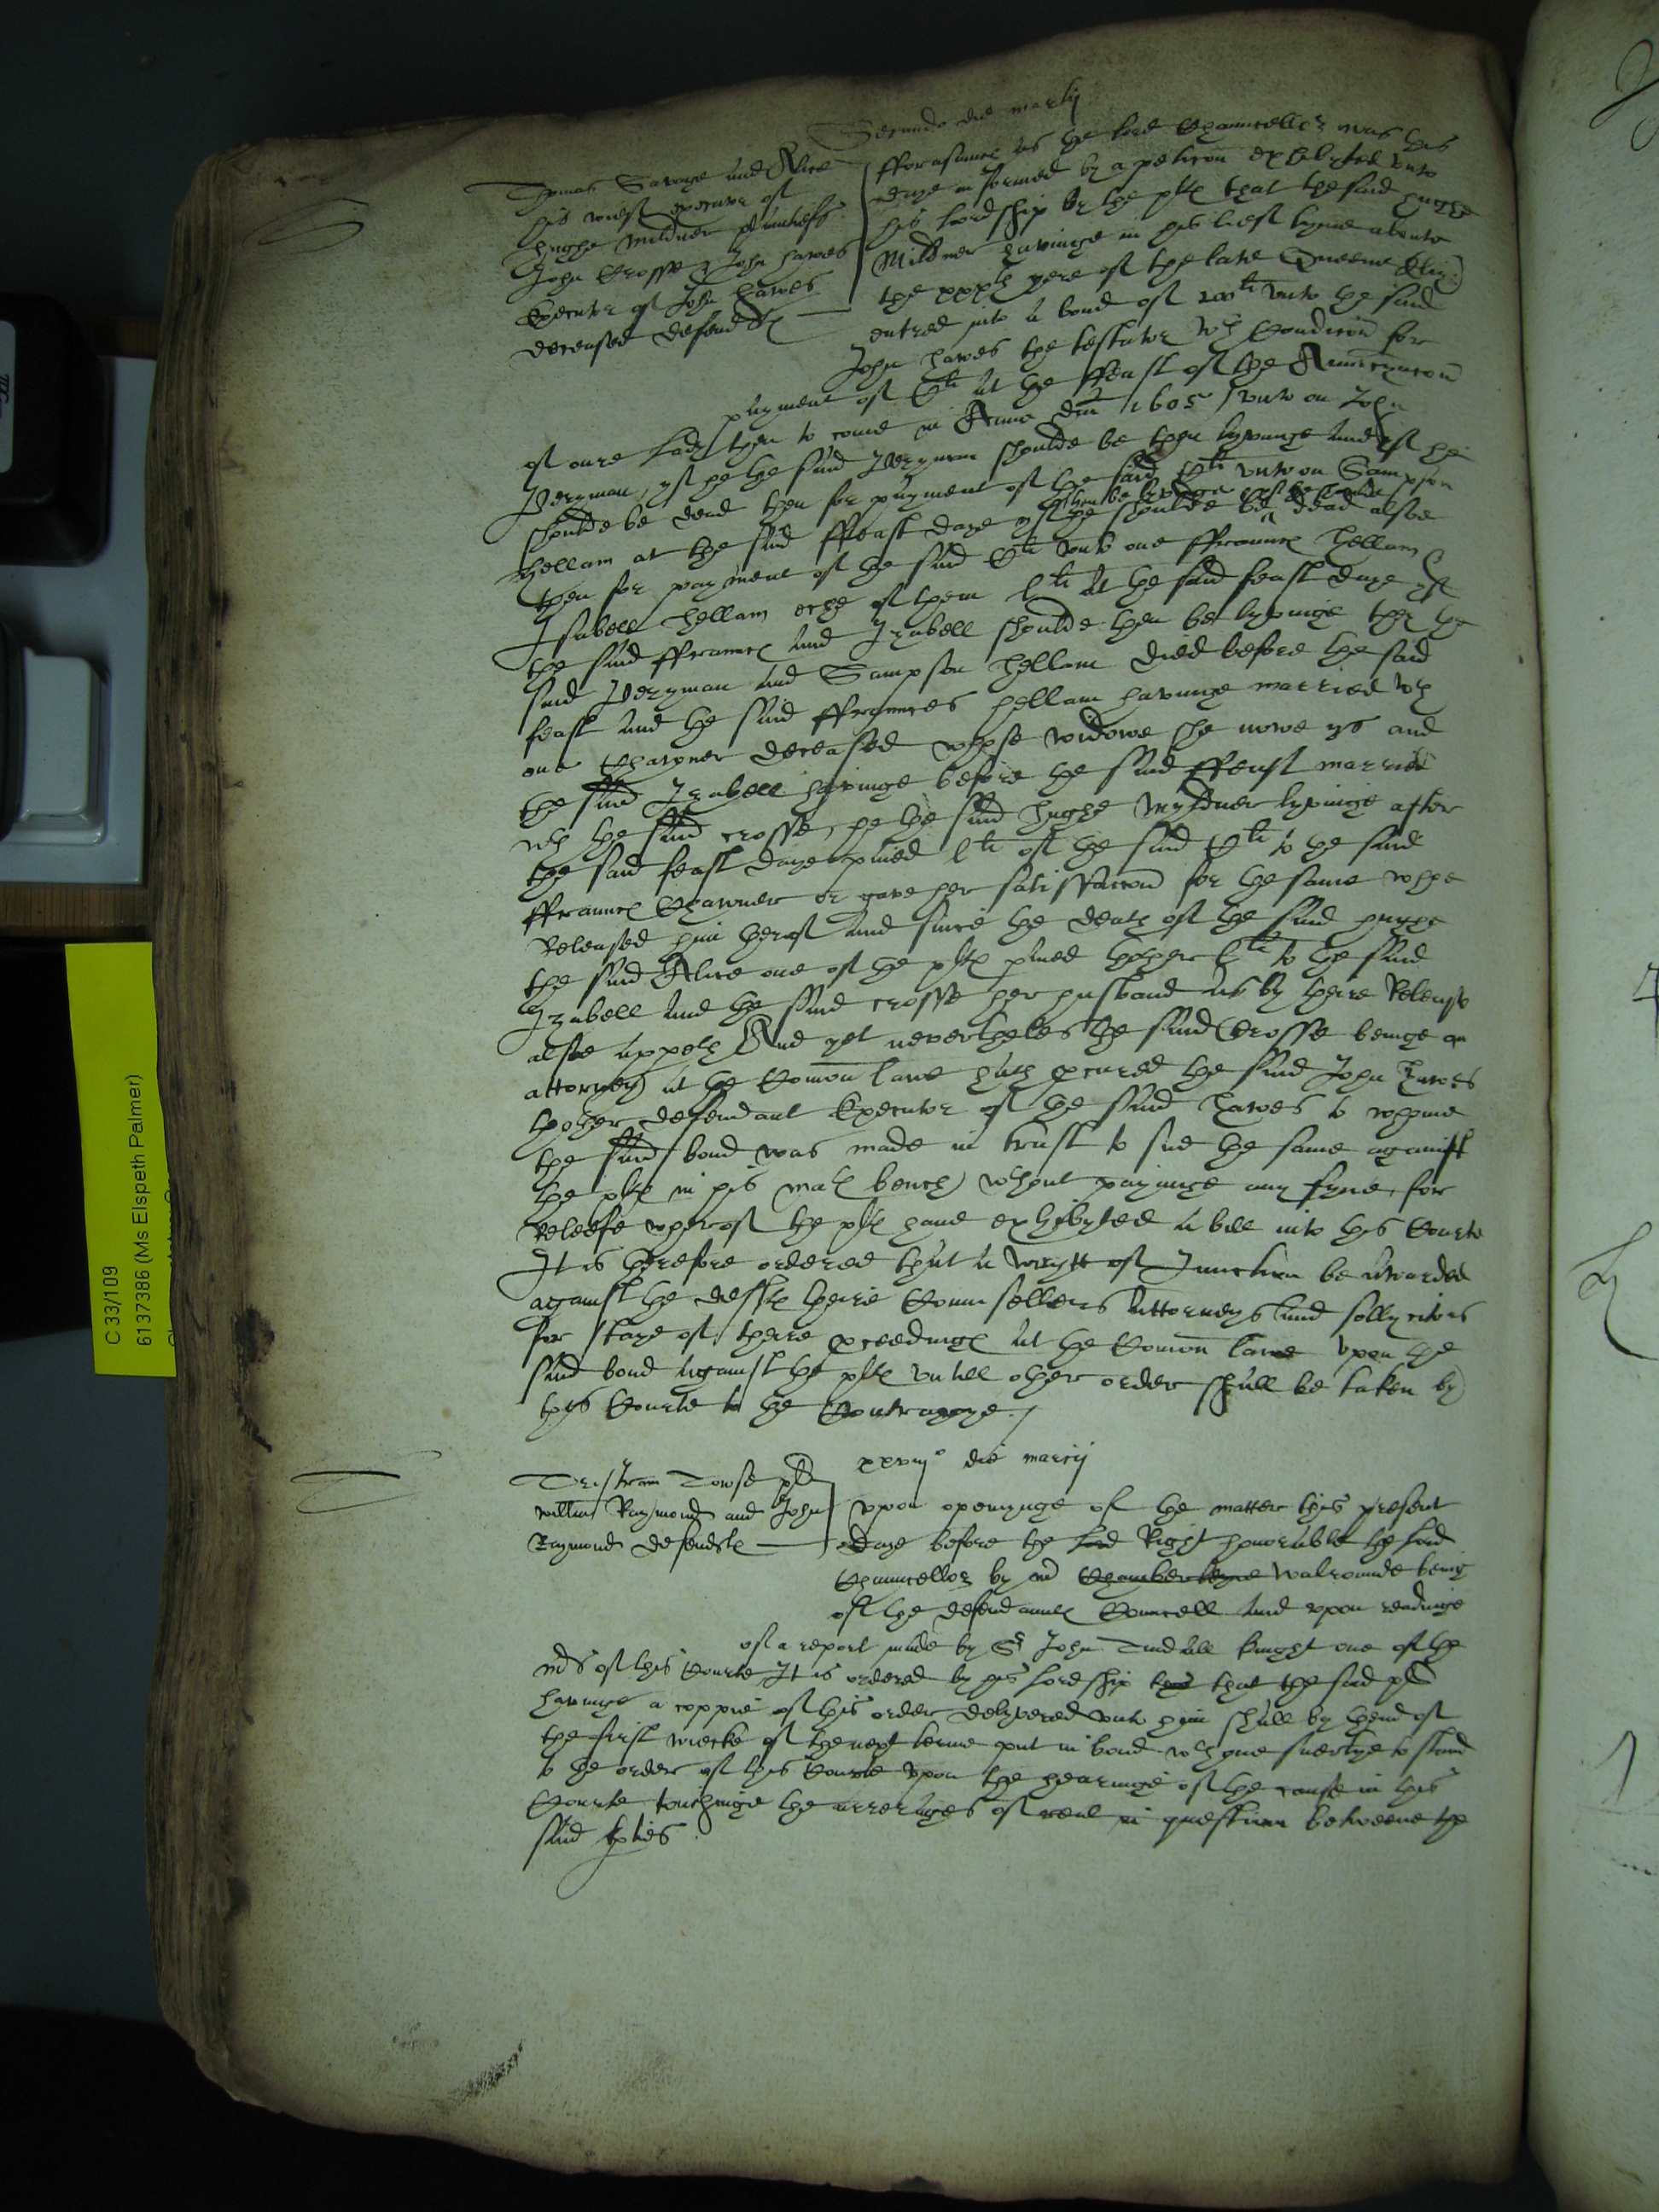 Secundo die marcij
Thomas Savage and Alice
his wief executor of
Hughe Mildner plaintiefs
John Crosse & John Hawes
Executor of John Hawes
deceased defendtes
fforasmuch as the lord Chauncellor was this
daye informed by a peticon exhibited vnto
his lordship by the pltes that the said Hughe
Mildner havinge in his lief tyme aboute
the xxxth yere of the late Queene Eliz:
entred into a bond of 200li vnto the said
John Hawes the testator wth Condicon for
payment of Cli at the ffeast of the Anunciacon
of oure Lady then to come in Anno dni 1605 / vnto on John
Peryman, yf he the said Peryman shoulde be then lyvinge and yf he
shoulde be dead then for payment of the said Cli vnto on Sampson
Hellam at the said ffeast daye yf he shoulde then be lyvinge and yf he shoulde be dead alsoe
then for payment of the said Cli vnto one ffraunces Hellam &
Isabell Hellam eche of them lli at the said feast daye yf
the said ffraunces and Izabell shoulde then be lyvinge the
said Peryman and Sampson Hellam died before the said
feast and the said ffraunces Hellam havinge married wth
one Chawner deceased whose widowe she nowe ys and
the said Izabell havinge before the said ffeast married
wth the said crosse, he the said Hughe Myldner lyvinge after
the said feast daye paied lli of the said Cli to the said
ffraunces Chawner or gave her satisffaccon for the same whoe
Released him therof and since the death of the said Hughe
the said Alice one of the pltes paied thother lli to the said
Izabell and the said crosse her husband as by theire Release
alsoe appeth And yet neverthelesse the said Crosse beinge an
attorney at the Comon lawe hath pcured the said John Hawes
thother defendant Executor of the said Hawes to whome
the said bond was made in trust to sue the same against
the pltes in his mates bench wthout payinge any fyne, for
releefe wherof the pltes have exhibyted a bill into this Courte
It is therefore ordered that a wrytt of Iniunction be awarded
against the deftes theire Counsellers Attorneys and sollycitors
for staye of theire pceedinges at the Comon lawe vpon the
said bond against the pltes vntill other order shall be taken by
this Courte to the Contrarye /
xxviijo die marcij
Tristram Towse plt
Willm Raymond and John
Raymond defendtes
vpon openynge of the matter this present
daye before the lord Right honorable the lord
Chauncellor by mr Chamberleyne Walrounde being
of the defendauntes Councell and vpon readinge
of a report made by Sr John Tindall knight one of the
mrs of this Courte It is ordered by his lordship that the said plt
havinge a coppie of this order delyvered vnto him shall by thend of
the first weeke of the next terme put in bond wth one suertye to stand
to the order of this Courte vpon the hearinge of the cause in this
Courte touchinge the arrerages of rent in question betweene the
said pties
C 33/109
6137386 (Ms Elspeth Palmer)